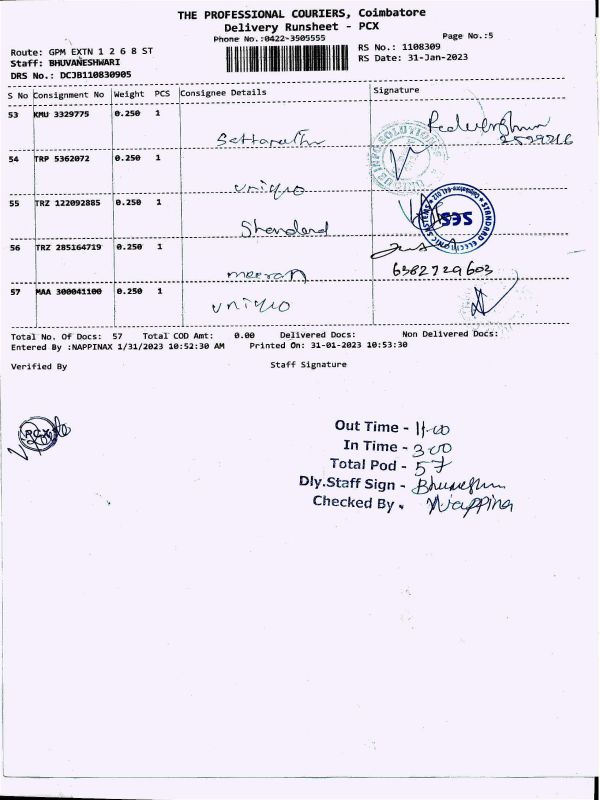 THE PROFESSIONAL COURIERS, Coimbatore
Delivery Runsheet - PCX
Phone No.:0422-3505555
Page No.:5
Route: GPM EXTN 1 2 6 8 ST
RS No.: 1108309
Staff: BHUVANESHWARI
RS Date: 31-Jan-2023
DRS No.: DCJB110830905
S No Consignment No Weight PCS Consignee Details Signature
53 KMU 3329775 0.250 1
54 TRP 5362072 0.250 1 unique
55 TRZ 122092885 0.250 1 Standard
SES
56 TRZ 285164719 0.250 1 meeran 6382729603
57 MAA 300041100 0.250 1 unique
Total No. Of Docs: 57 Total COD Amt: 0.00 Delivered Docs: Non Delivered Docs:
Entered By :NAPPINAX 1/31/2023 10:52:30 AM Printed On: 31-01-2023 10:53:30
Verified By Staff Signature
PCX
Out Time - 11-00
In Time - 3 00
Total Pod - 57
Dly.Staff Sign -
Checked By - Nappina